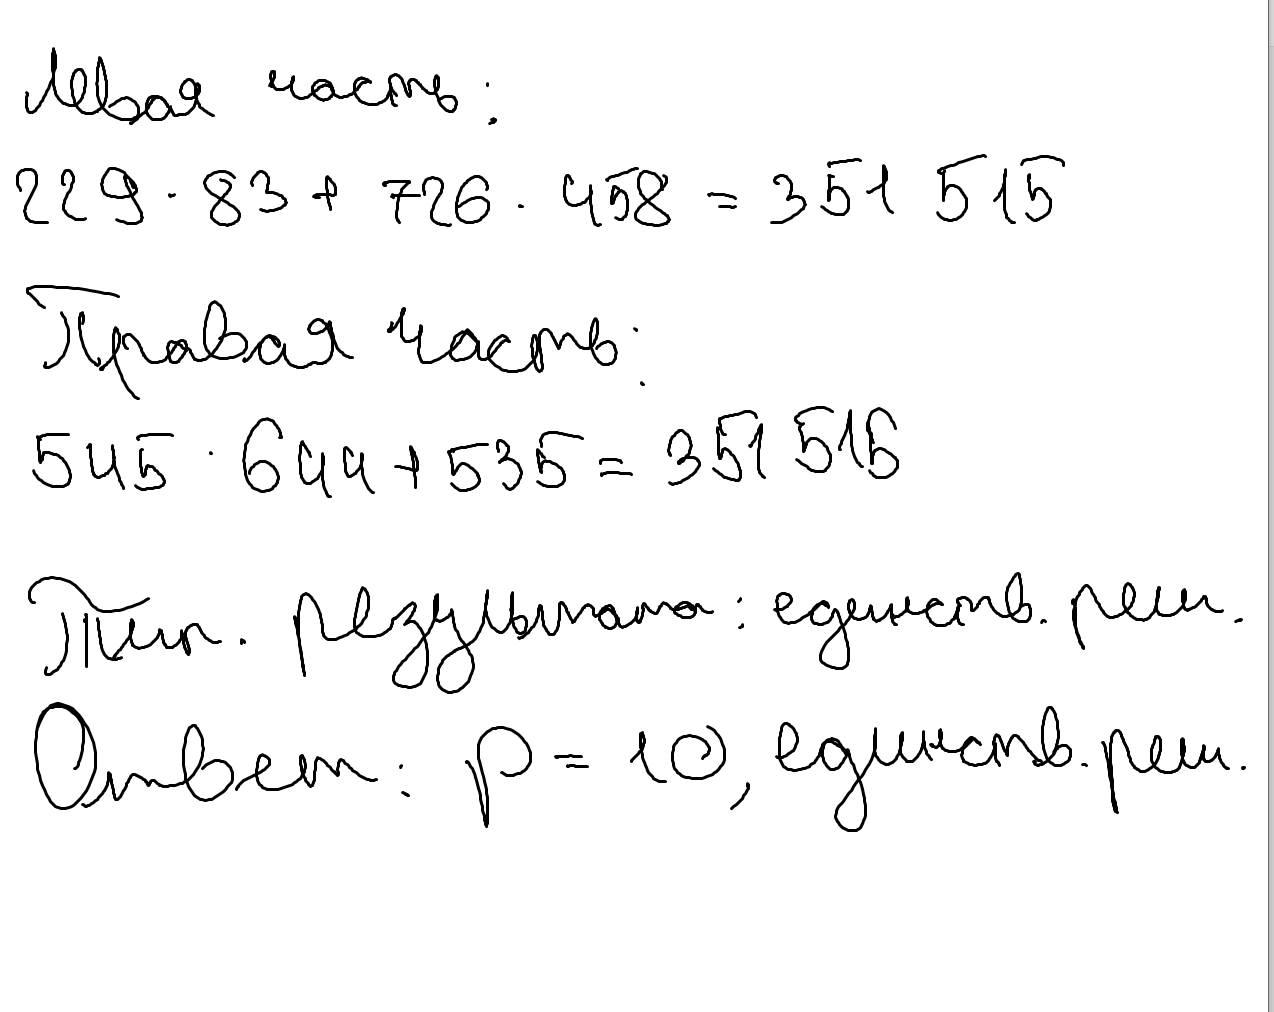 Левая часть:
229 · 83 + 726 · 458 = 351 515
Правая часть:
545 · 644 + 535 = 351 515
Тип. результата: единств. реш.
Ответ: p = 10, единств. реш.